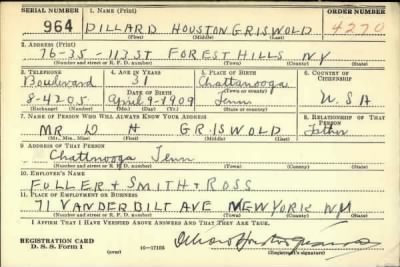 SERIAL NUMBER 1. NAME (Print) ORDER NUMBER
964 DILLARD HOUSTON GRISWOLD 4270
(First) (Middle) (Last)
2. ADDRESS (Print)
76-35 - 113 ST FOREST HILLS NY
(Number and street or R. F. D. number) (Town) (County) (State)
3. TELEPHONE 4. AGE IN YEARS 5. PLACE OF BIRTH 6. COUNTRY OF CITIZENSHIP
Boulevard 31 Chattanooga
DATE OF BIRTH (Town or county)
8-4205 April 9-1909 Tenn U.S.A
(Exchange) (Number) (Mo.) (Day) (Yr.) (State or country)
7. NAME OF PERSON WHO WILL ALWAYS KNOW YOUR ADDRESS 8. RELATIONSHIP OF THAT PERSON
MR D H GRISWOLD Father
(Mr., Mrs., Miss) (First) (Middle) (Last)
9. ADDRESS OF THAT PERSON
Chattnooga Tenn
(Number and street or R. F. D. number) (Town) (County) (State)
10. EMPLOYER'S NAME
FULLER & SMITH & ROSS
11. PLACE OF EMPLOYMENT OR BUSINESS
71 VANDERBILT AVE NEW YORK NY
(Number and street or R. F. D. number) (Town) (County) (State)
I AFFIRM THAT I HAVE VERIFIED ABOVE ANSWERS AND THAT THEY ARE TRUE.
REGISTRATION CARD
D. S. S. Form 1 16-17105
(Registrant's signature)